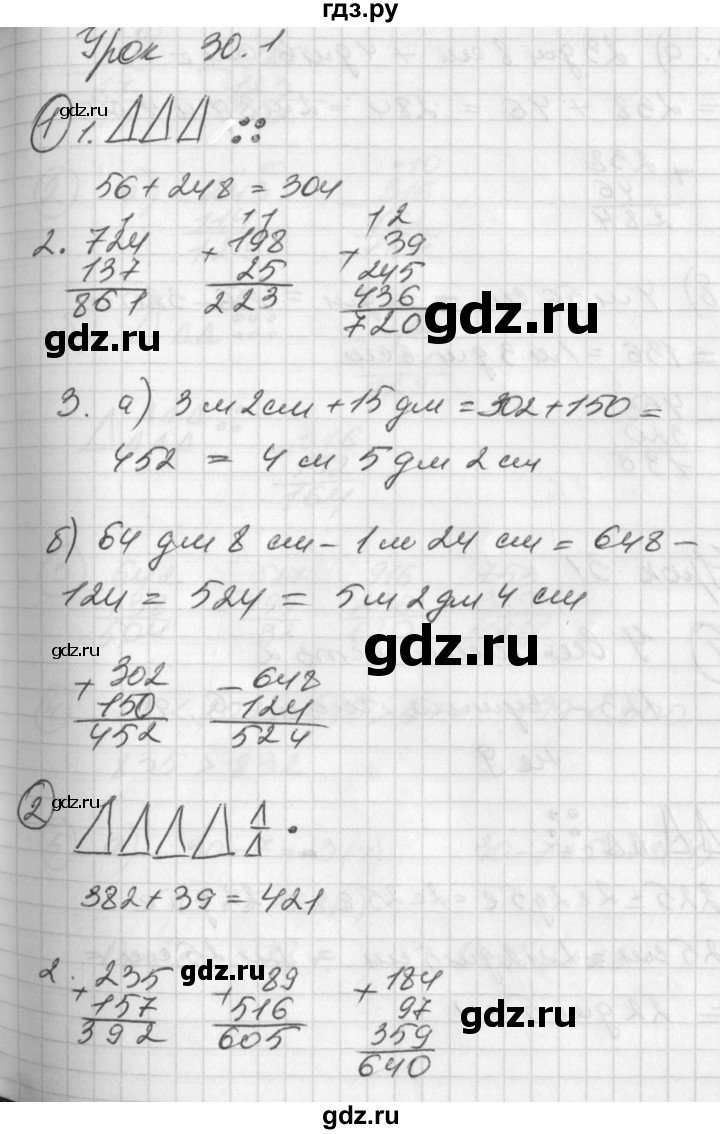 гдз.ру
Урок 30.1
gdz.ru
① 1.
56 + 248 = 304
1 11 12
2. 724 + 198 + 39
137 25 245
861 223 436
720
gdz.ru
gdz.ru
3. а) 3 м 2 см + 15 дм = 302 + 150 =
452 = 4 м 5 дм 2 см
б) 64 дм 8 см - 1 м 24 см = 648 -
124 = 524 = 5 м 2 дм 4 см
gdz.ru
gdz.ru
+ 302 - 648
150 124
452 524
②
gdz.ru
382 + 39 = 421
gdz.ru
2. + 235 + 89 + 184
157 516 97
392 605 359
640
gdz.ru
gdz.ru